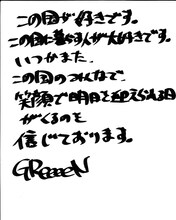 この国が好きです。
この国に暮らす人が大好きです。
いつかまた、
この国のみんなで、
笑顔で明日を迎えられる日
がくるのを
信じております。
GReeeeN